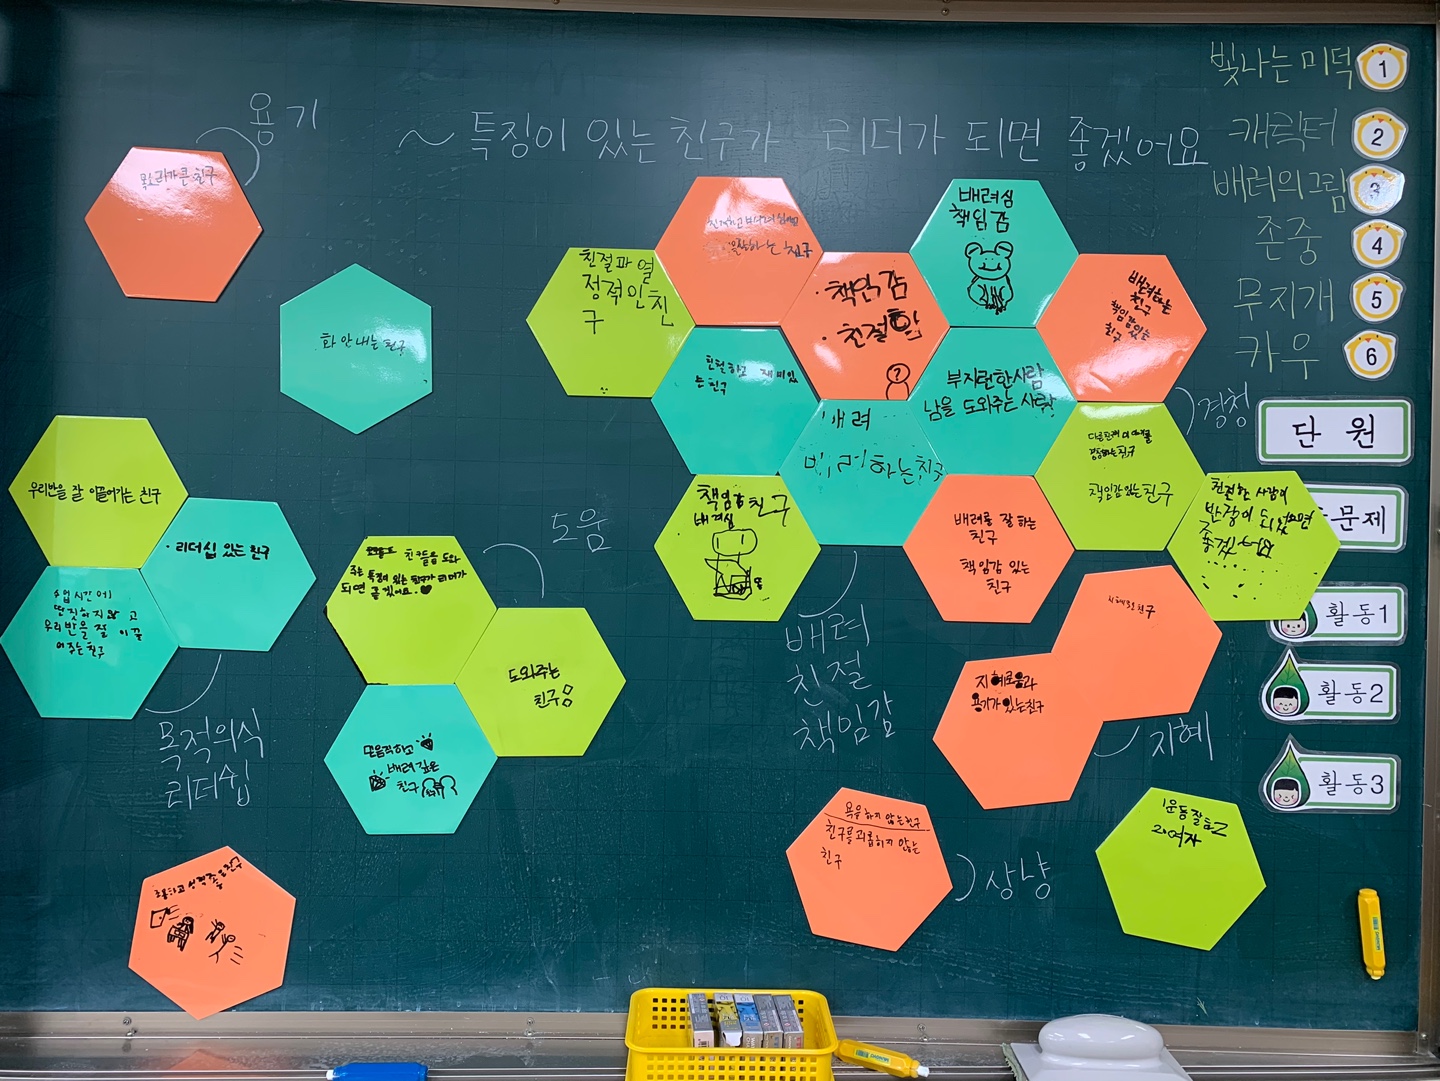 ~ 특징이 있는 친구가 리더가 되면 좋겠어요
빛나는 미덕
1
캐릭터
2
배려의 그림
3
존중
4
무지개
5
카우
6
단 원
문제
활동1
활동2
활동3
용기
목소리가 큰 친구
화 안 내는 친구
우리반을 잘 이끌어가는 친구
· 리더십 있는 친구
수업시간에
딴짓하지 않고
우리반을 잘 이끌
어주는 친구
목적의식
리더쉽
도움
친구들을 도와
주는 특징이 있는 친구가 리더가
되면 좋겠어요.♥
도와주는
친구
배려깊은
친구
친절과 열
정적인 친
구
친구
· 책임감
· 친절함
?
배려심
책임감
배려하는
친구
책임감 있는
친구
친절하고 재미있
는 친구
배려
배려하는 친구
부지런한 사람
남을 도와주는 사람
경청
친구
책임감 있는 친구
책임감 친구
배려심
배려를 잘 하는
친구
책임감 있는
친구
친절한 사람이
반장이 되었으면
좋겠어요
배려
친절
책임감
친구
지혜로움과
용기가 있는 친구
지혜
욕을 하지 않는 친구
친구를 괴롭히지 않는
친구
상냥
1.운동 잘하고
2.여자
성격 좋은 친구